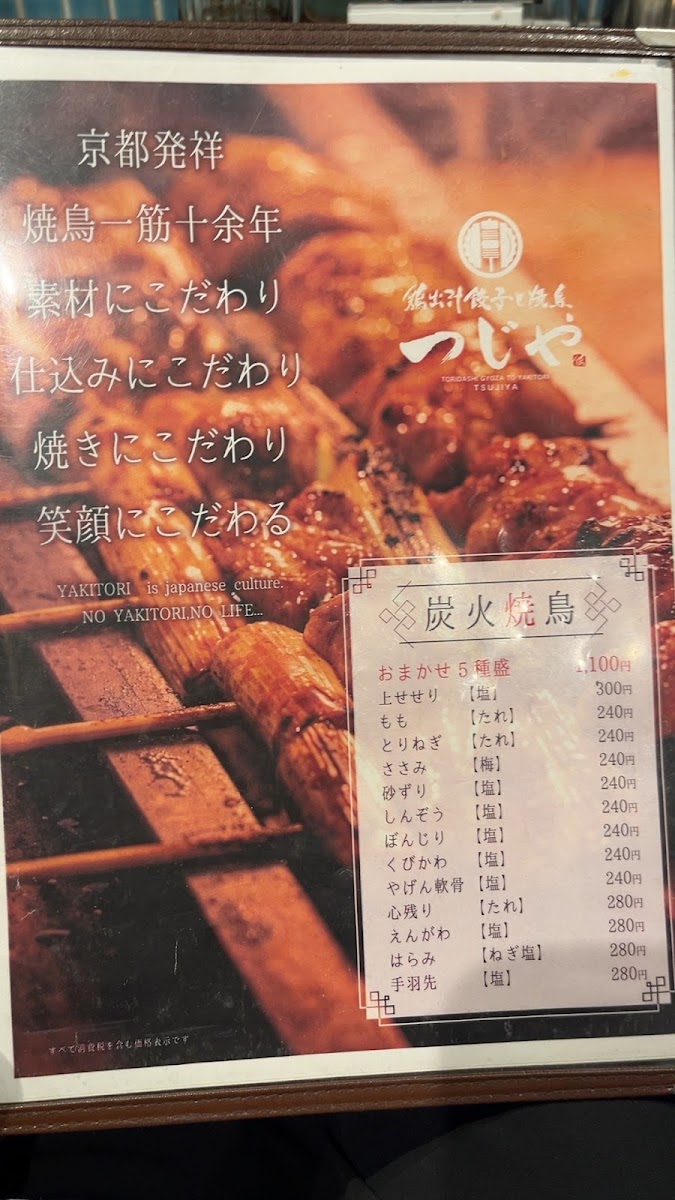 京都発祥
焼鳥一筋十余年
素材にこだわり
仕込みにこだわり
焼きにこだわり
笑顔にこだわる
YAKITORI is japanese culture.
NO YAKITORI,NO LIFE...
鶏出汁餃子と焼鳥
つじや
TORIDASHI GYOZA TO YAKITORI
TSUJIYA
炭火焼鳥
おまかせ5種盛 1,100円
上せせり 【塩】 300円
もも 【たれ】 240円
とりねぎ 【たれ】 240円
ささみ 【梅】 240円
砂ずり 【塩】 240円
しんぞう 【塩】 240円
ぼんじり 【塩】 240円
くびかわ 【塩】 240円
やげん軟骨 【塩】 240円
心残り 【たれ】 280円
えんがわ 【塩】 280円
はらみ 【ねぎ塩】 280円
手羽先 【塩】 280円
すべて消費税を含む価格表示です